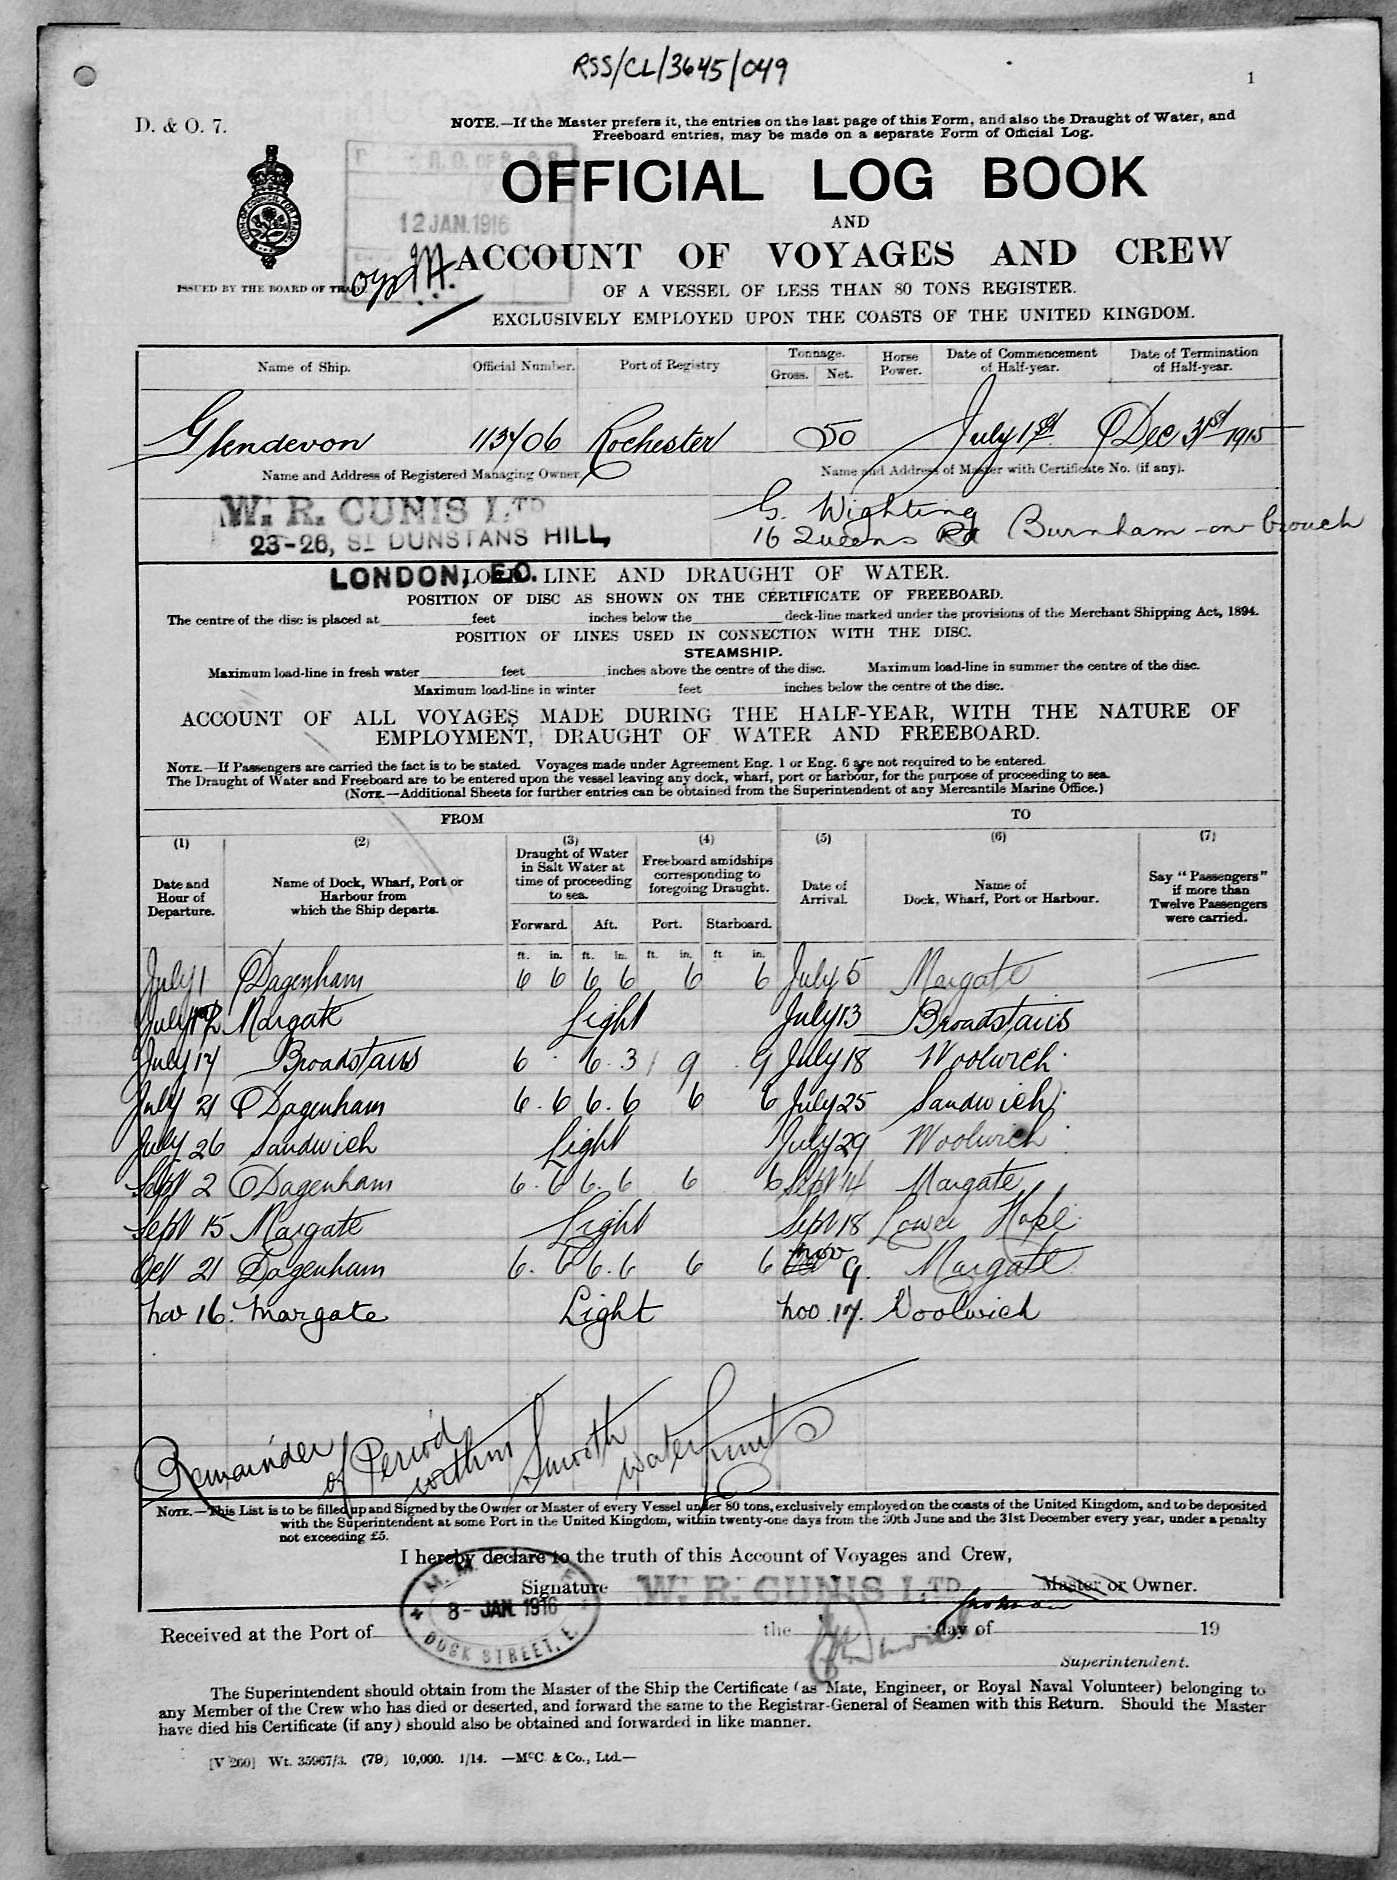 RSS/CL/3645/049
1
D. & O. 7.
NOTE.—If the Master prefers it, the entries on the last page of this Form, and also the Draught of Water, and
Freeboard entries, may be made on a separate Form of Official Log.
OFFICIAL LOG BOOK
AND
12 JAN. 1916
ACCOUNT OF VOYAGES AND CREW
ISSUED BY THE BOARD OF TRADE.
OF A VESSEL OF LESS THAN 80 TONS REGISTER.
EXCLUSIVELY EMPLOYED UPON THE COASTS OF THE UNITED KINGDOM.
Name of Ship. Official Number. Port of Registry Tonnage. Gross. Net. Horse Power. Date of Commencement of Half-year. Date of Termination of Half-year.
Glendevon 113706 Rochester 50 July 1st Dec 31st 1915
Name and Address of Registered Managing Owner Name and Address of Master with Certificate No. (if any).
W. R. CUNIS LTD G. Wighting
23-26, ST DUNSTANS HILL, 16 Queens Rd Burnham-on-Crouch
LONDON, E.C.
LOAD LINE AND DRAUGHT OF WATER.
POSITION OF DISC AS SHOWN ON THE CERTIFICATE OF FREEBOARD.
The centre of the disc is placed at feet inches below the deck-line marked under the provisions of the Merchant Shipping Act, 1894.
POSITION OF LINES USED IN CONNECTION WITH THE DISC.
STEAMSHIP.
Maximum load-line in fresh water feet inches above the centre of the disc. Maximum load-line in summer the centre of the disc.
Maximum load-line in winter feet inches below the centre of the disc.
ACCOUNT OF ALL VOYAGES MADE DURING THE HALF-YEAR, WITH THE NATURE OF
EMPLOYMENT, DRAUGHT OF WATER AND FREEBOARD.
NOTE.—If Passengers are carried the fact is to be stated. Voyages made under Agreement Eng. 1 or Eng. 6 are not required to be entered.
The Draught of Water and Freeboard are to be entered upon the vessel leaving any dock, wharf, port or harbour, for the purpose of proceeding to sea.
(NOTE.—Additional Sheets for further entries can be obtained from the Superintendent of any Mercantile Marine Office.)
FROM TO
(1) (2) (3) (4) (5) (6) (7)
Date and Hour of Departure. Name of Dock, Wharf, Port or Harbour from which the Ship departs. Draught of Water in Salt Water at time of proceeding to sea. Freeboard amidships corresponding to foregoing Draught. Date of Arrival. Name of Dock, Wharf, Port or Harbour. Say "Passengers" if more than Twelve Passengers were carried.
Forward. Aft. Port. Starboard.
ft. in. ft. in. ft. in. ft in.
July 1 Dagenham 6 6 6 6 6 6 July 5 Margate
July 12 Margate Light July 13 Broadstairs
July 17 Broadstairs 6 6 . 3 9 9 July 18 Woolwich
July 21 Dagenham 6 . 6 6 . 6 6 6 July 25 Sandwich
July 26 Sandwich Light July 29 Woolwich
Sept 2 Dagenham 6 . 6 6 . 6 6 6 Sept 14 Margate
Sept 15 Margate Light Sept 18 Lower Hope
Oct 21 Dagenham 6 . 6 6 . 6 6 6 Nov 9. Margate
Nov 16. Margate Light Nov. 17. Woolwich
Remainder of Period within Smooth water limits
NOTE.—This List is to be filled up and Signed by the Owner or Master of every Vessel under 80 tons, exclusively employed on the coasts of the United Kingdom, and to be deposited
with the Superintendent at some Port in the United Kingdom, within twenty-one days from the 30th June and the 31st December every year, under a penalty
not exceeding £5.
I hereby declare to the truth of this Account of Voyages and Crew,
Signature W. R. CUNIS LTD Master or Owner.
8- JAN. 1916
DOCK STREET, E.
Received at the Port of the day of 19
Superintendent.
The Superintendent should obtain from the Master of the Ship the Certificate (as Mate, Engineer, or Royal Naval Volunteer) belonging to
any Member of the Crew who has died or deserted, and forward the same to the Registrar-General of Seamen with this Return. Should the Master
have died his Certificate (if any) should also be obtained and forwarded in like manner.
[V 260] Wt. 35967/3. (79) 10,000. 1/14. —McC. & Co., Ltd.—